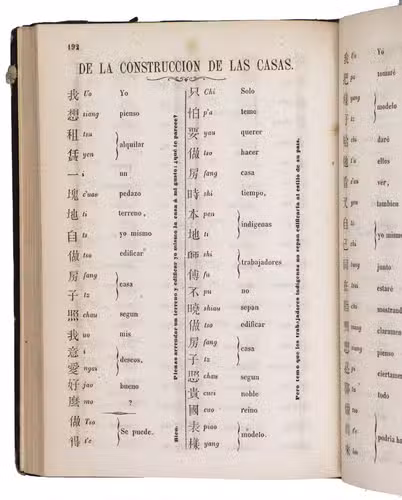 192
DE LA CONSTRUCCION DE LAS CASAS.
我 Uo Yo
想 siang pienso
租 tsu
賃 yen
alquilar
一 un
塊 c'uao pedazo
地 ti terreno,
自 ts yo mismo
做 tso edificar
房 fang
子 tz
casa
照 chau segun
我 uo mis
意 i
愛 ngai
deseos,
好 jao bueno
麽 mo ?
做 Tso
得 t'e
Se puede.
Piensas arrendar un terreno y edificar yo mismo la casa á mi gusto: ¿qué te parece?
Bien.
只 Chi Solo
怕 p'a temo
要 yau querer
做 tso hacer
房 fang casa
時 shi tiempo,
本 pen
地 ti
indígenas
師 shi
傅 fu
trabajadores
不 pu no
曉 shiau sepan
做 tso edificar
房 fang
子 tz
casa
照 chau segun
貴 cuei noble
國 cuo reino
表 piao
樣 yang
modelo.
Pero temo que los trabajadores indígenas no sepan edificarla al estilo de su pais.
我 Uo Yo
把 pa tomaré
樣
子 tz
modelo
給 dar
他 t'a elles
看 ver,
也 tambien
自
己
yo mismo
同 junto
在 estaré
指 mostrando
claramente
想 pienso
必 ciertamente
都 todo
podria ha